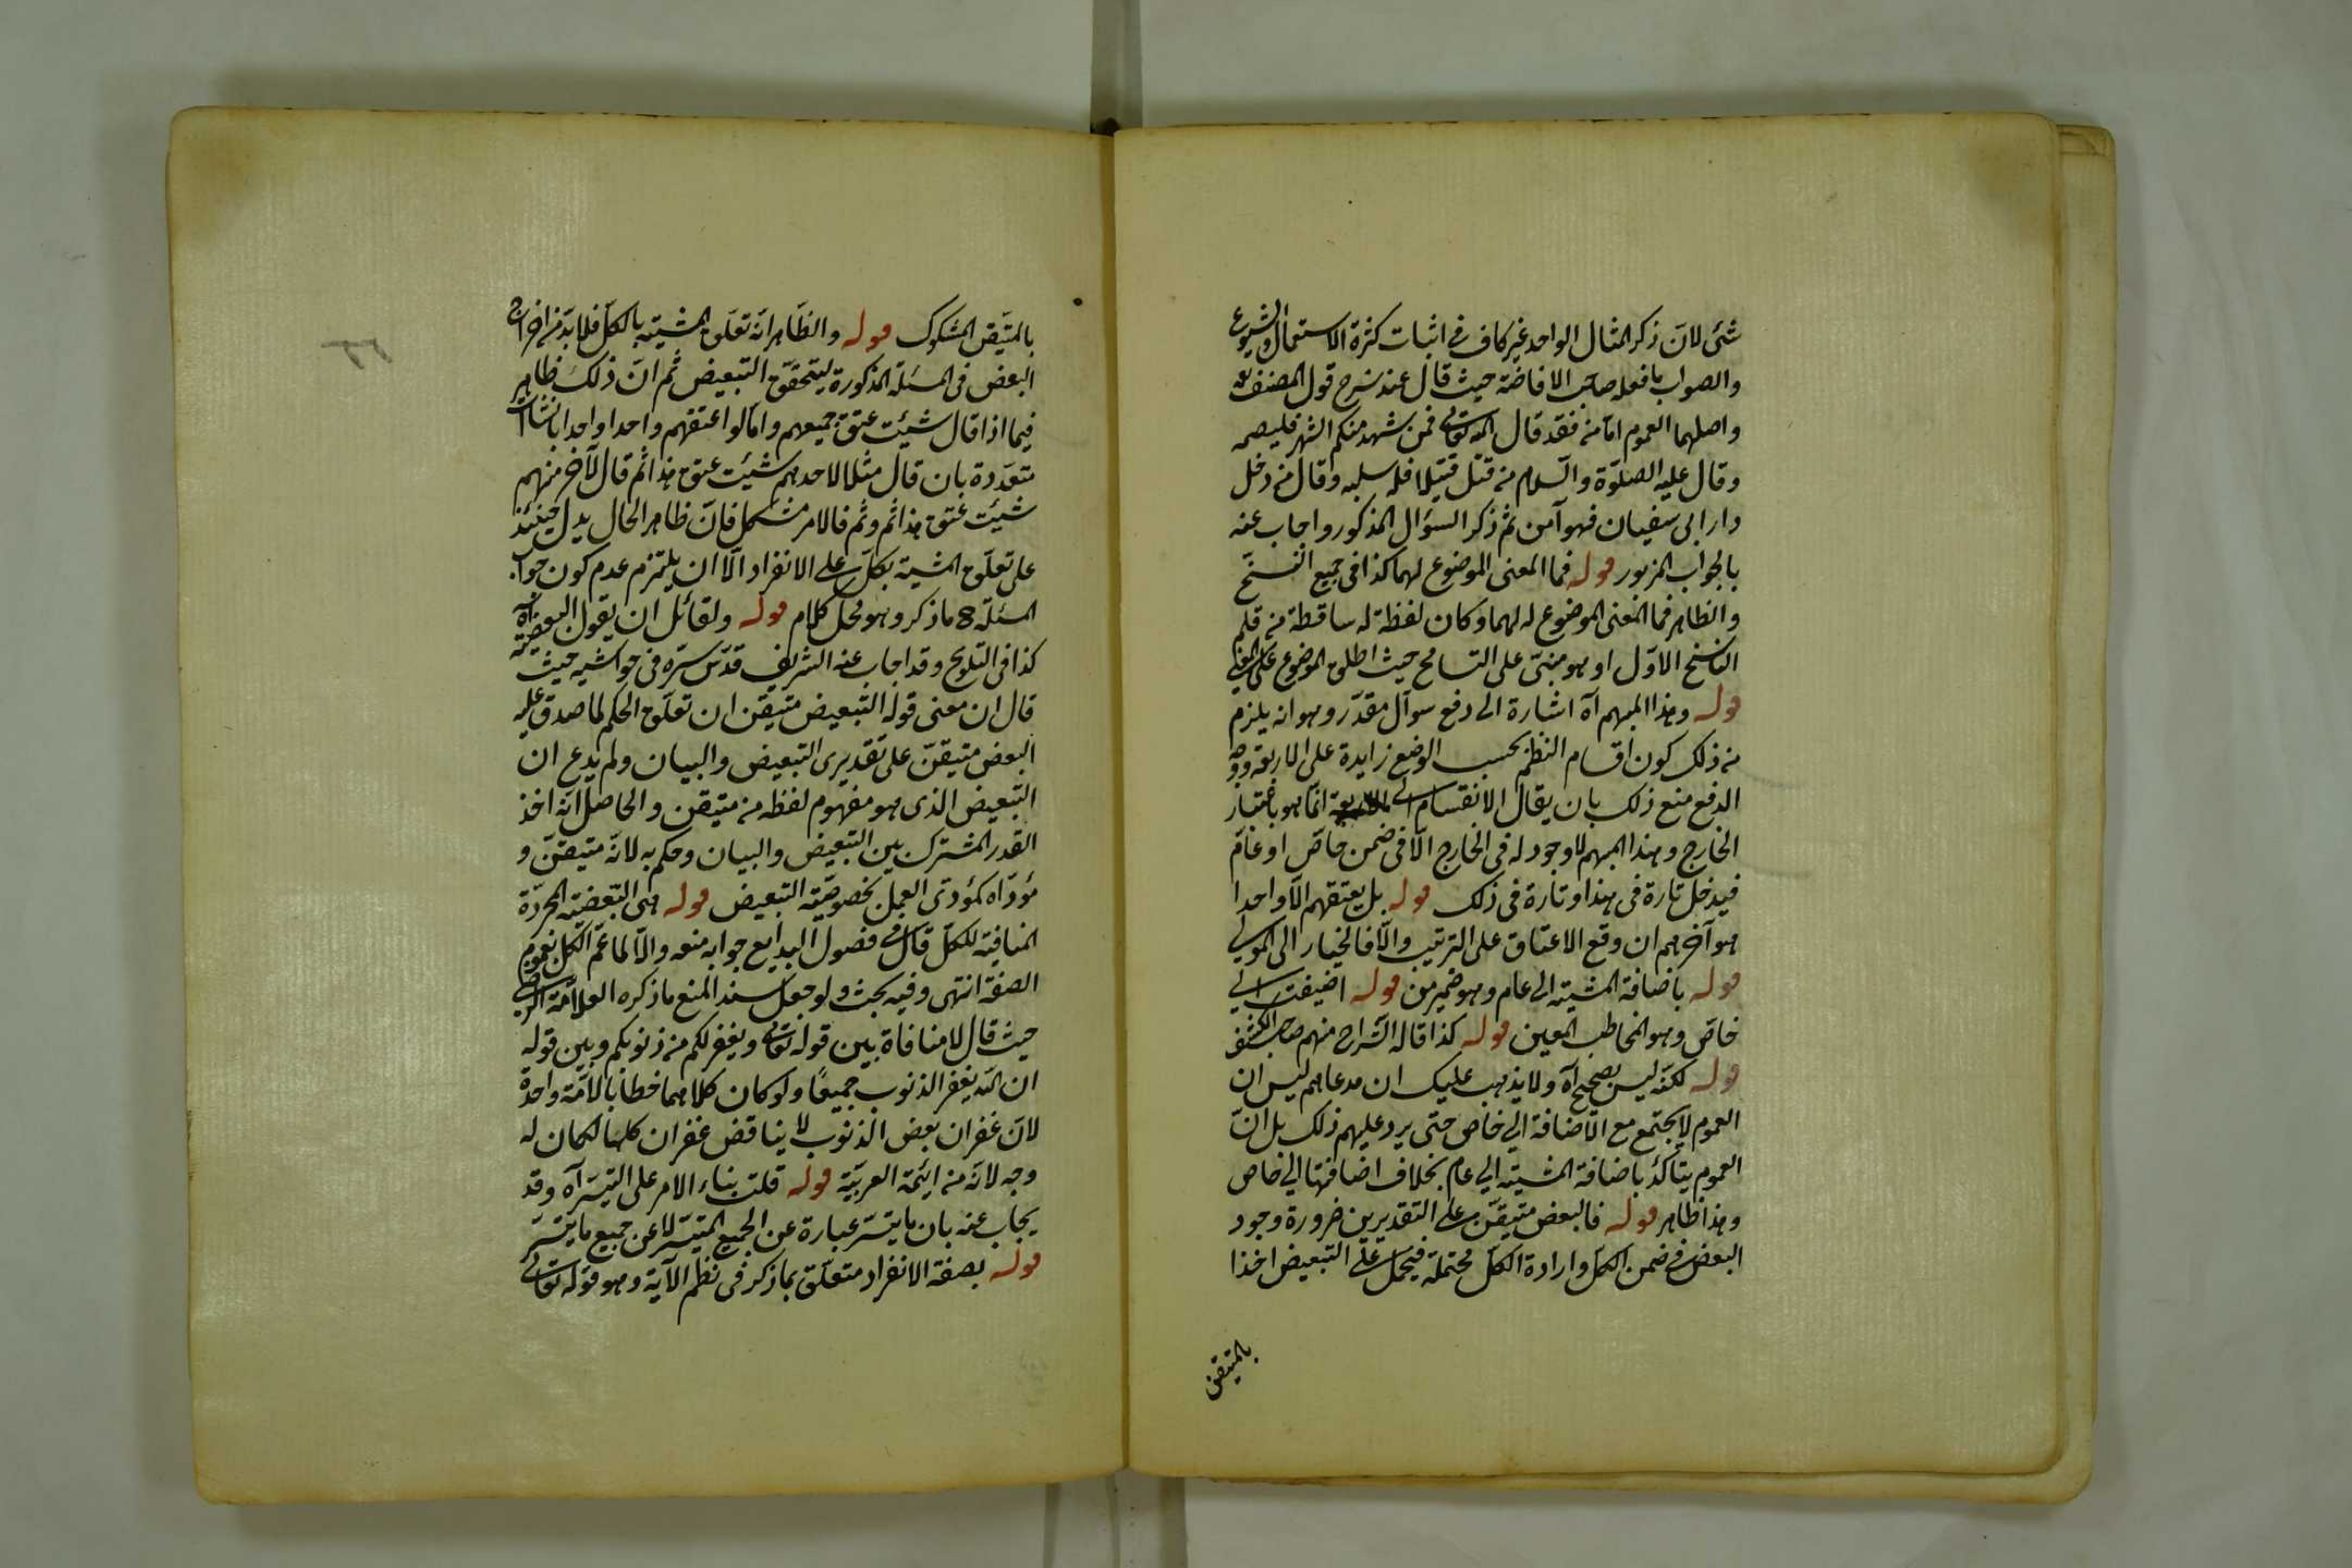 شئ لان ذكر المثال الواحد غير كاف في اثبات كثرة الاستعمال والشيوع
والصواب ما فعله صاحب الافاضة حيث قال عند شرح قول المصنف
واصلهما العموم اما من فقد قال الله تعالى فمن شهد منكم الشهر فليصمه
وقال عليه الصلوة والسلام من قتل قتيلا فله سلبه وقال من دخل
دار ابى سفيان فهو آمن ثم ذكر السؤال المذكور واجاب عنه
بالجواب المزبور قوله فما المعنى الموضوع لهما كذا فى جميع النسخ
والظاهر فما المعنى الموضوع له لهما وكان لفظة له ساقطة من قلم
الناسخ الاول او هو مبنى على التسامح حيث اطلق الموضوع على المعنى
قوله وهذا المبهم آه اشارة الى دفع سوآل مقدر وهو انه يلزم
من ذلك كون اقسام النظم بحسب الوضع زايدة على الاربعة ووجه
الدفع منع ذلك بان يقال الانقسام الى الاربعة انما هو باعتبار
الخارج وهذا المبهم لا وجود له فى الخارج الا فى ضمن خاص او عام
فيدخل تارة فى هذا وتارة فى ذلك قوله بل يعتقهم الا واحدا
هو آخرهم ان وقع الاعتاق على الترتيب والا فالخيار الى المولى
قوله باضافة المشيته الى عام وهو ضمير من قوله اضيفت الى
خاص وهو المخاطب المعين قوله كذا قاله الشراح منهم صاحب الكشف
قوله لكنه ليس بصحيح آه ولا يذهب عليك ان مدعاهم ليس ان
العموم لا يجتمع مع الاضافة الى خاص حتى يرد عليهم ذلك بل ان
العموم يتأكد باضافة المشيته الى عام بخلاف اضافتها الى خاص
وهذا ظاهر قوله فالبعض متيقن على التقديرين ضرورة وجود
البعض فى ضمن الكل وارادة الكل محتملة فيحمل على التبعيض اخذا
بالمتيقن
بالمتيقن المشكوك قوله والظاهر انه تعلق المشيته بالكل فلا بد من اخراج
البعض فى المسئلة المذكورة ليتحقق التبعيض ثم ان ذلك ظاهر
فيما اذا قال شيئت عتق جميعهم واما لو اعتقهم واحدا واحدا
متعددة بان قال مثلا لاحدهم شيئت عتق هذا ثم قال لآخر منهم
شيئت عتق هذا ثم وثم فالامر مشكل فان ظاهر الحال يدل حينئذ
على تعلق المشية بكل على الانفراد الا ان يلتزم عدم كون جواب
المسئلة ما ذكر وهو محل كلام قوله ولقائل ان يقول البعضية آه
كذا فى التلويح وقد اجاب عنه الشريف قدس سره فى حواشيه حيث
قال ان معنى قوله التبعيض متيقن ان تعلق الحكم لما صدق عليه
البعض متيقن على تقديرى التبعيض والبيان ولم يدع ان
التبعيض الذى هو مفهوم لفظه من متيقن والحاصل انه اخذ
القدر المشترك بين التبعيض والبيان وحكم به لانه متيقن و
مؤداه كمؤدى العمل بخصوصية التبعيض قوله هى البعضيته المجردة
المنافية للكل قال فى فصول البدايع جوابه منعه والا لما عم الكل بعموم
الصفة انتهى وفيه بحث ولو جعل سند المنع ما ذكره العلامة الرضى
حيث قال لا منافاة بين قوله تعالى ويغفر لكم من ذنوبكم وبين قوله
ان الله يغفر الذنوب جميعا ولو كان كلاهما خطابا لامة واحدة
لان غفران بعض الذنوب لا يناقض غفران كلها لكان له
وجه لانه من ائمة العربية قوله قلت بناء الامر على التيسر آه وقد
يجاب عنه بان ما يتسر عبارة عن الجميع المتيسر لا عن جميع ما يتسر
قوله بصفة الانفراد متعلق بما ذكر فى نظم الآية وهو قوله تعالى